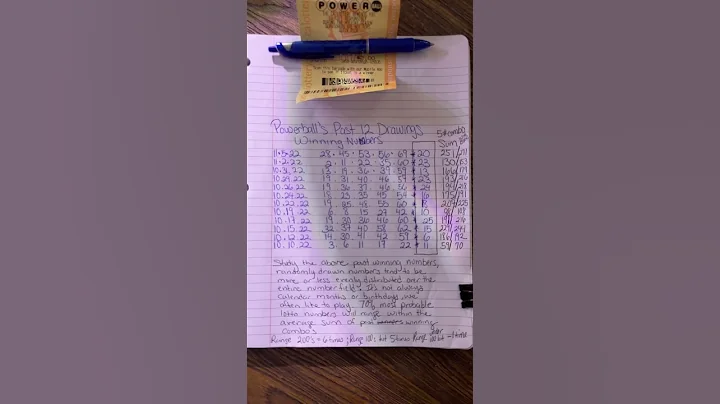 POWER
Powerball's Past 12 Drawings
Winning Numbers
5# combo
Sum
11.5.22 28.45.53.56.69 20 251/271
11.2.22 2.11.22.35.60 23 130/153
10.31.22 13.19.36.39.59 13 166/179
10.29.22 19.31.40.46.57 23 193/216
10.26.22 19.36.37.46.56 24
10.24.22 18.23.35.45.54 16 175/191
10.22.22 19.25.48.55.60 18 207/225
10.19.22 6.8.15.27.42 10 98/108
10.17.22 19.30.36.46.60 25 191/216
10.15.22 32.37.40.58.62 15 229/
10.12.22 14.30.41.42.59 6 186/192
10.10.22 3.6.11.17.22 11 59/70
Study the above past winning numbers,
randomly drawn numbers tend to be
more or less evenly distributed over the
entire number field. It's not always
calendar months or birthdays we
often like to play. 70% most probable
lotto numbers will range within the
average sum of past winning
combo's
Range 200's = 6 times; Range 100's but 5 times Range 100 but - 1 time